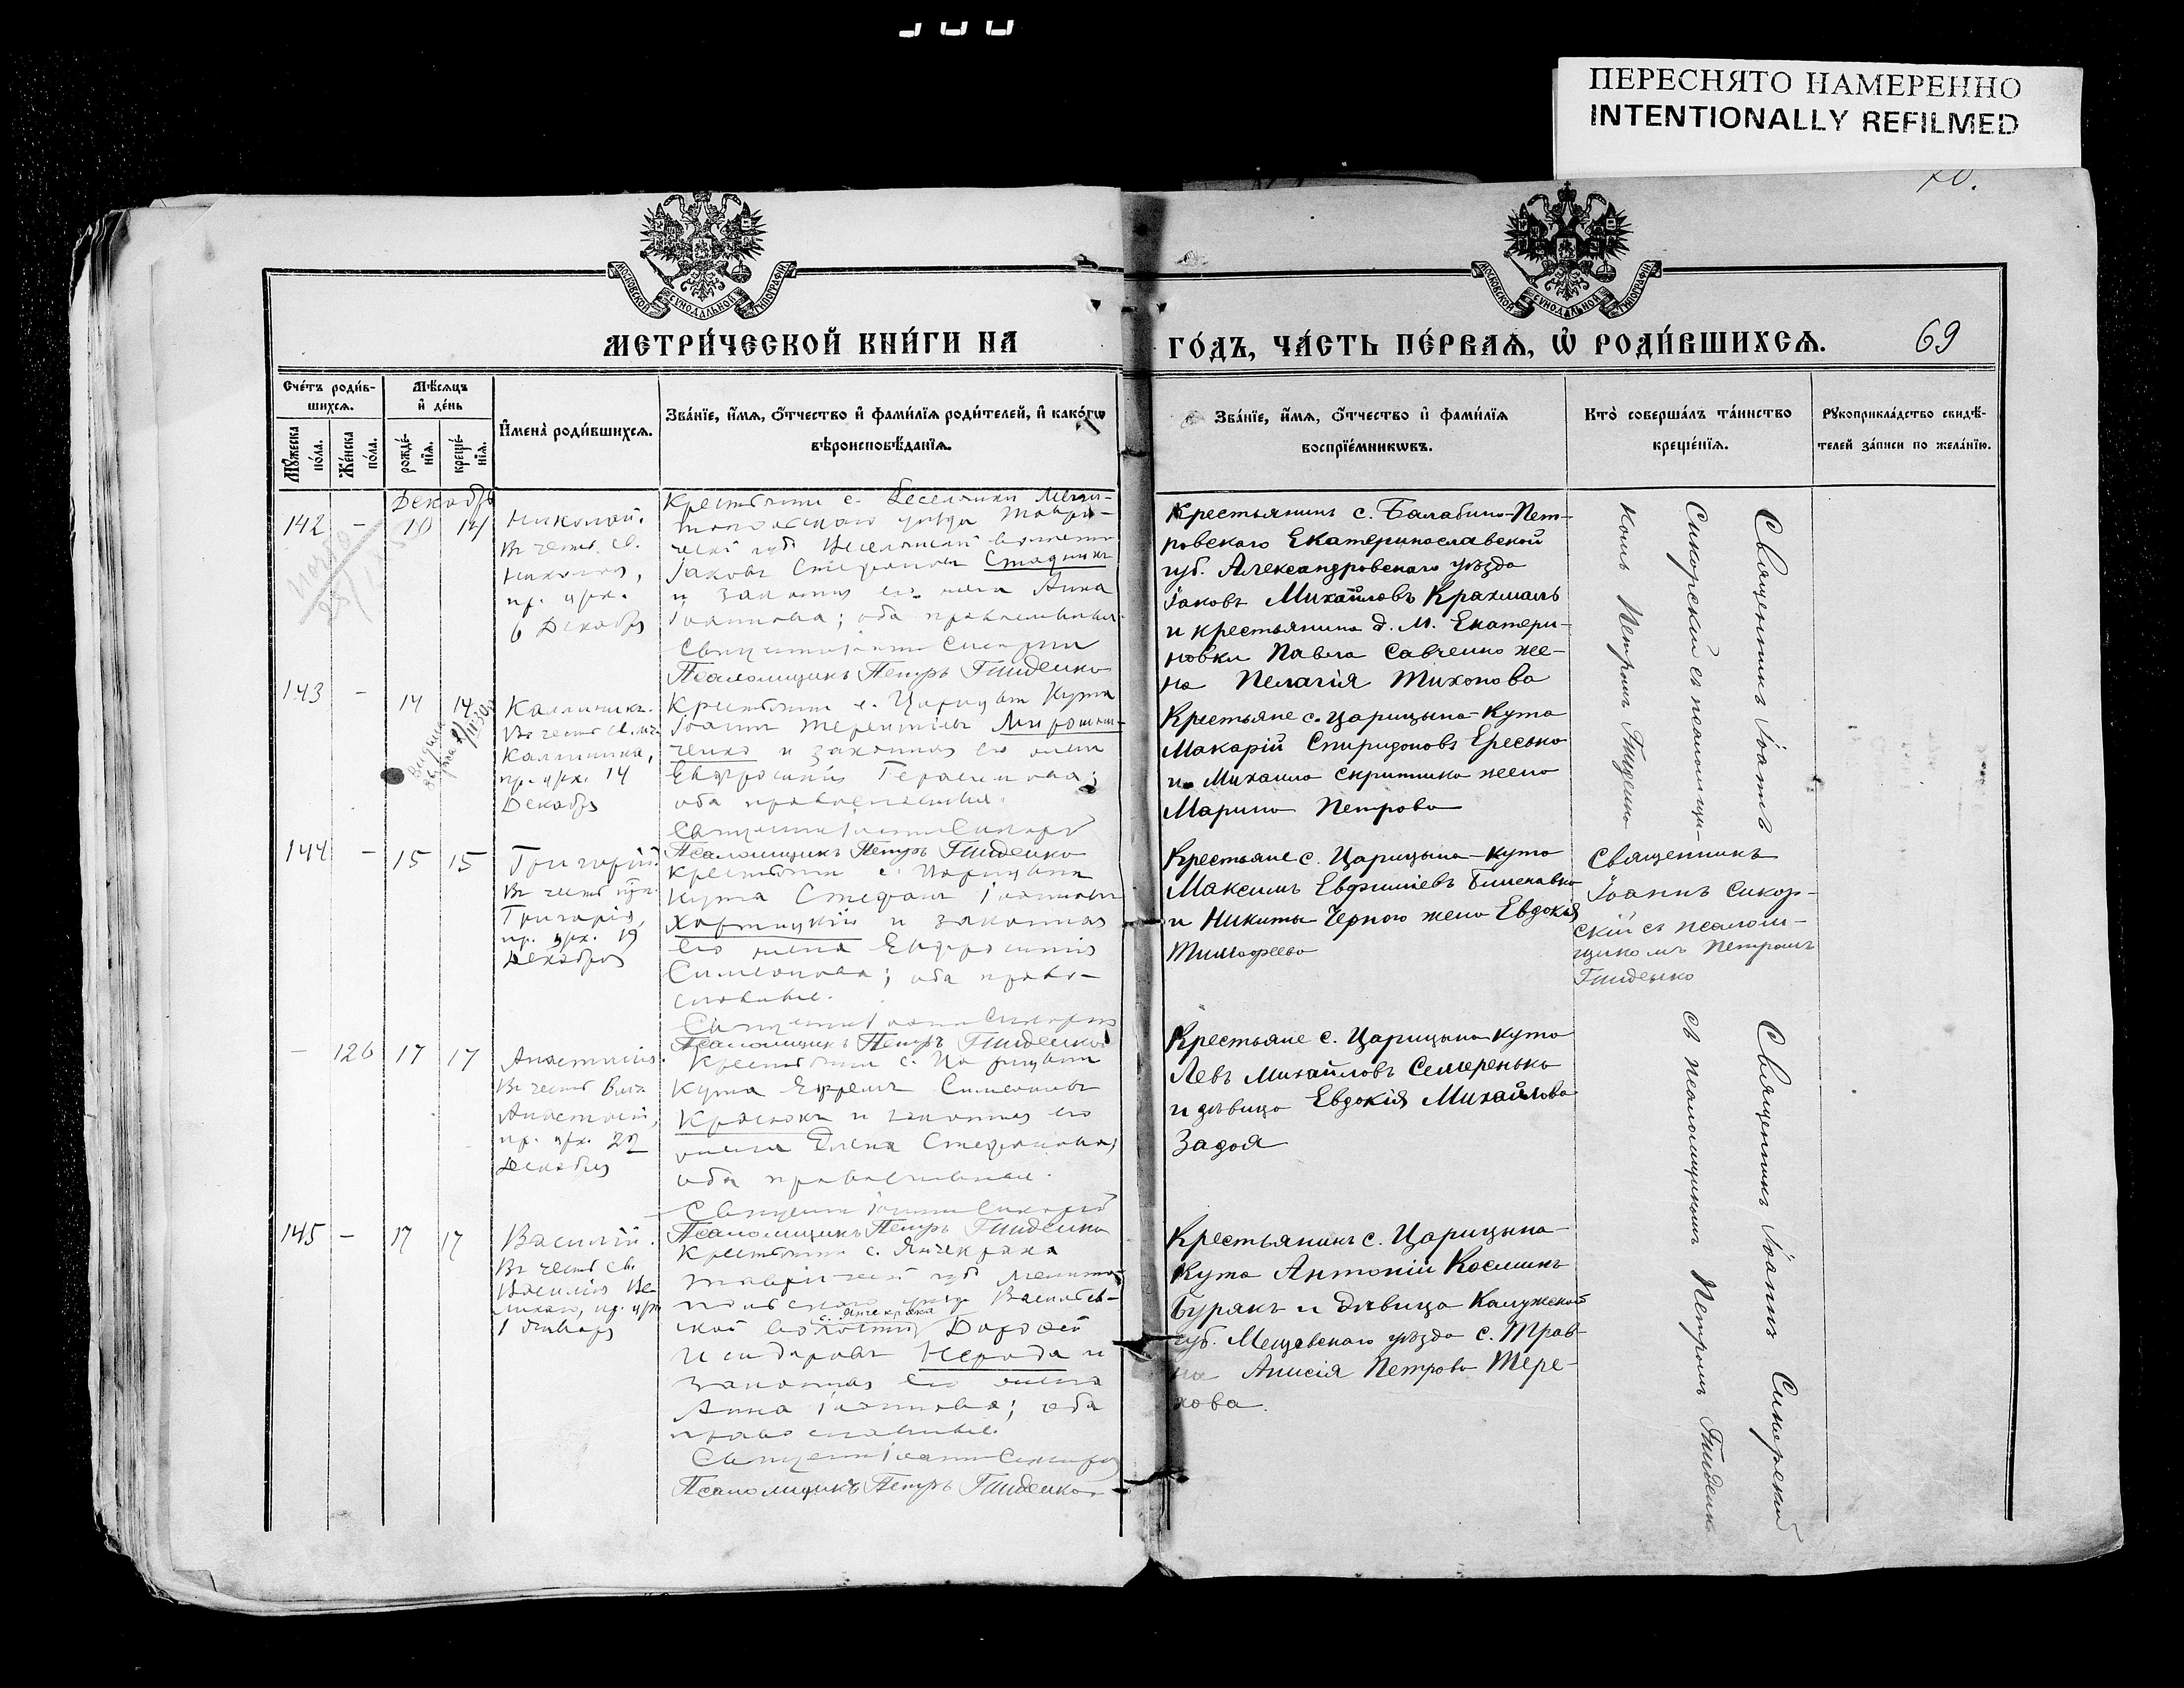 ПЕРЕСНЯТО НАМЕРЕННО
INTENTIONALLY REFILMED
70.
МОСКОВСКОЙ СѴНОДАЛЬНОЙ ТИПОГРАФІИ
МОСКОВСКОЙ СѴНОДАЛЬНОЙ ТИПОГРАФІИ
МЕТРИ́ЧЕСКОЙ КНИ́ГИ НА
ГО́ДЪ, ЧА́СТЬ ПЕ́РВАѦ, Ѡ҆ РОДИ́ВШИХСѦ.
69
Сче́тъ роди́в-
шихсѧ.
Мѣ́сѧцъ
и҆ де́нь
Мꙋ́жеска
по́ла.
Же́нска
по́ла.
рожде́-
нїѧ.
креще́-
нїѧ.
И҆мена̀ роди́вшихсѧ.
Зва́нїе, и҆́мѧ, ѻ҆́тчество и҆ фами́лїѧ роди́телей, и҆ како́гѡ
вѣроисповѣ́данїѧ.
Зва́нїе, и҆́мѧ, ѻ҆́тчество и҆ фами́лїѧ
воспрїе́мникѡвъ.
Кто̀ соверша́лъ та́инство
креще́нїѧ.
Рꙋкоприкла́дство свидѣ́-
телей за́писи по жела́нїю.
Декабрь
142 - 10 14
Николай.
Въ честь св.
Николая,
пр. црк.
6 Декабря
Крестьянинъ с. Веселянки Мели-
топольскаго уѣзда Таври-
ческ. губ. Веселянской волости
Іаковъ Стефановъ Стадникъ
и законная его жена Анна
Іоаннова; оба православные.
Священникъ Іоаннъ Сикорскій
Псаломщикъ Петръ Гниденко
Крестьянинъ с. Балабино-Пет-
ровского Екатеринославской
губ. Александровскаго уѣзда
Іаковъ Михайловъ Крахмаль
и крестьянина д. М. Екатери-
новки Павла Савченко же-
на Пелагія Тихонова
Священникъ Іоаннъ
Сикорский съ псаломщи-
комъ Петромъ Гниденко
143 - 14 14
Каллиникъ.
Въ честь св. мч.
Каллиника,
пр. црк. 14
Декабря
Крестьянинъ с. Царицына Кута
Іоаннъ Терентіевъ Мирошни-
ченко и законная его жена
Евфросинія Герасимова;
оба православные.
Священникъ Іоаннъ Сикорскій
Псаломщикъ Петръ Гниденко
Крестьяне с. Царицына-Кута
Макарій Спиридоновъ Ересько
и Михаила Скрипника жена
Марина Петрова
144 - 15 15
Григорій.
Въ честь
Григорія,
пр. црк. 19
Декабря
Крестьянинъ с. Царицына
Кута Стефанъ Іоанновъ
Хортицкій и законная
его жена Евфросинія
Симеонова; оба право-
славные.
Священникъ Іоаннъ Сикорскій
Псаломщикъ Петръ Гниденко
Крестьяне с. Царицына-Кута
Максимъ Евфиміевъ
и Никиты Черного жена Евдокія
Тимофеева
Священникъ
Іоаннъ Сикор-
скій съ псалом-
щикомъ Петромъ
Гниденко
- 126 17 17
Анастасія.
Въ честь
Анастасіи,
пр. црк. 22
Декабря
Крестьянинъ с. Царицына
Кута Ефремъ Симеоновъ
и законная его
жена Елена Стефанова;
оба православные.
Священникъ Іоаннъ Сикорскій
Псаломщикъ Петръ Гниденко
Крестьяне с. Царицына Кута
Левъ Михайловъ Семеренько
и дѣвица Евдокія Михайлова
Задоя
Священникъ Іоаннъ Сикорский
съ псаломщикомъ Петромъ Гниденк.
145 - 17 17
Василій.
Въ честь св.
Василія Ве-
ликаго, пр. црк
1 Января
Крестьянинъ с. Янчекрака
Таврической губ. Мелито-
польскаго уѣзда Васильев-
ской волости с. Янчекрака Дорофей
Исидоровъ Нерода и
законная его жена
Анна Іоаннова; оба
православные.
Священникъ Іоаннъ Сикорскій
Псаломщикъ Петръ Гниденко
Крестьянинъ с. Царицына-
Кута Антоній Косминъ
Бурякъ и дѣвица Калужской
губ. Мещовскаго уѣзда с. Трав-
на Анисія Петрова Тере-
хова.